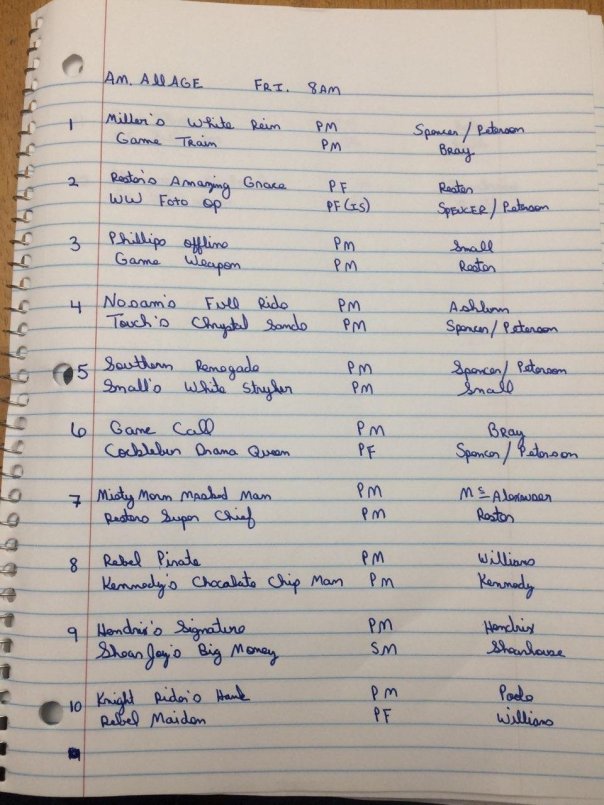 AM. All AGE FRI. 8AM
1 Miller's White Rein PM Spencer / Peterson
Game Train PM Bray
2 Rester's Amazing Grace PF Rester
WW Foto Op PF (IS) SPENCER / Peterson
3 Phillips offline PM Small
Game Weapon PM Rester
4 Nosam's Full Ride PM Ashburn
Touch's Chrystal Sands PM Spencer / Peterson
5 Southern Renegade PM Spencer / Peterson
Small's White Stryker PM Small
6 Game Call PM Bray
Cocklebur Drama Queen PF Spencer / Peterson
7 Misty Morn Masked Man PM Mc Alexander
Resters Super Chief PM Rester
8 Rebel Pirate PM Williams
Kennedy's Chocolate Chip Man PM Kennedy
9 Hendrix's Signature PM Hendrix
Shear Joy's Big Money SM Shearhouse
10 Knight Rider's Hank PM Poole
Rebel Maiden PF Williams